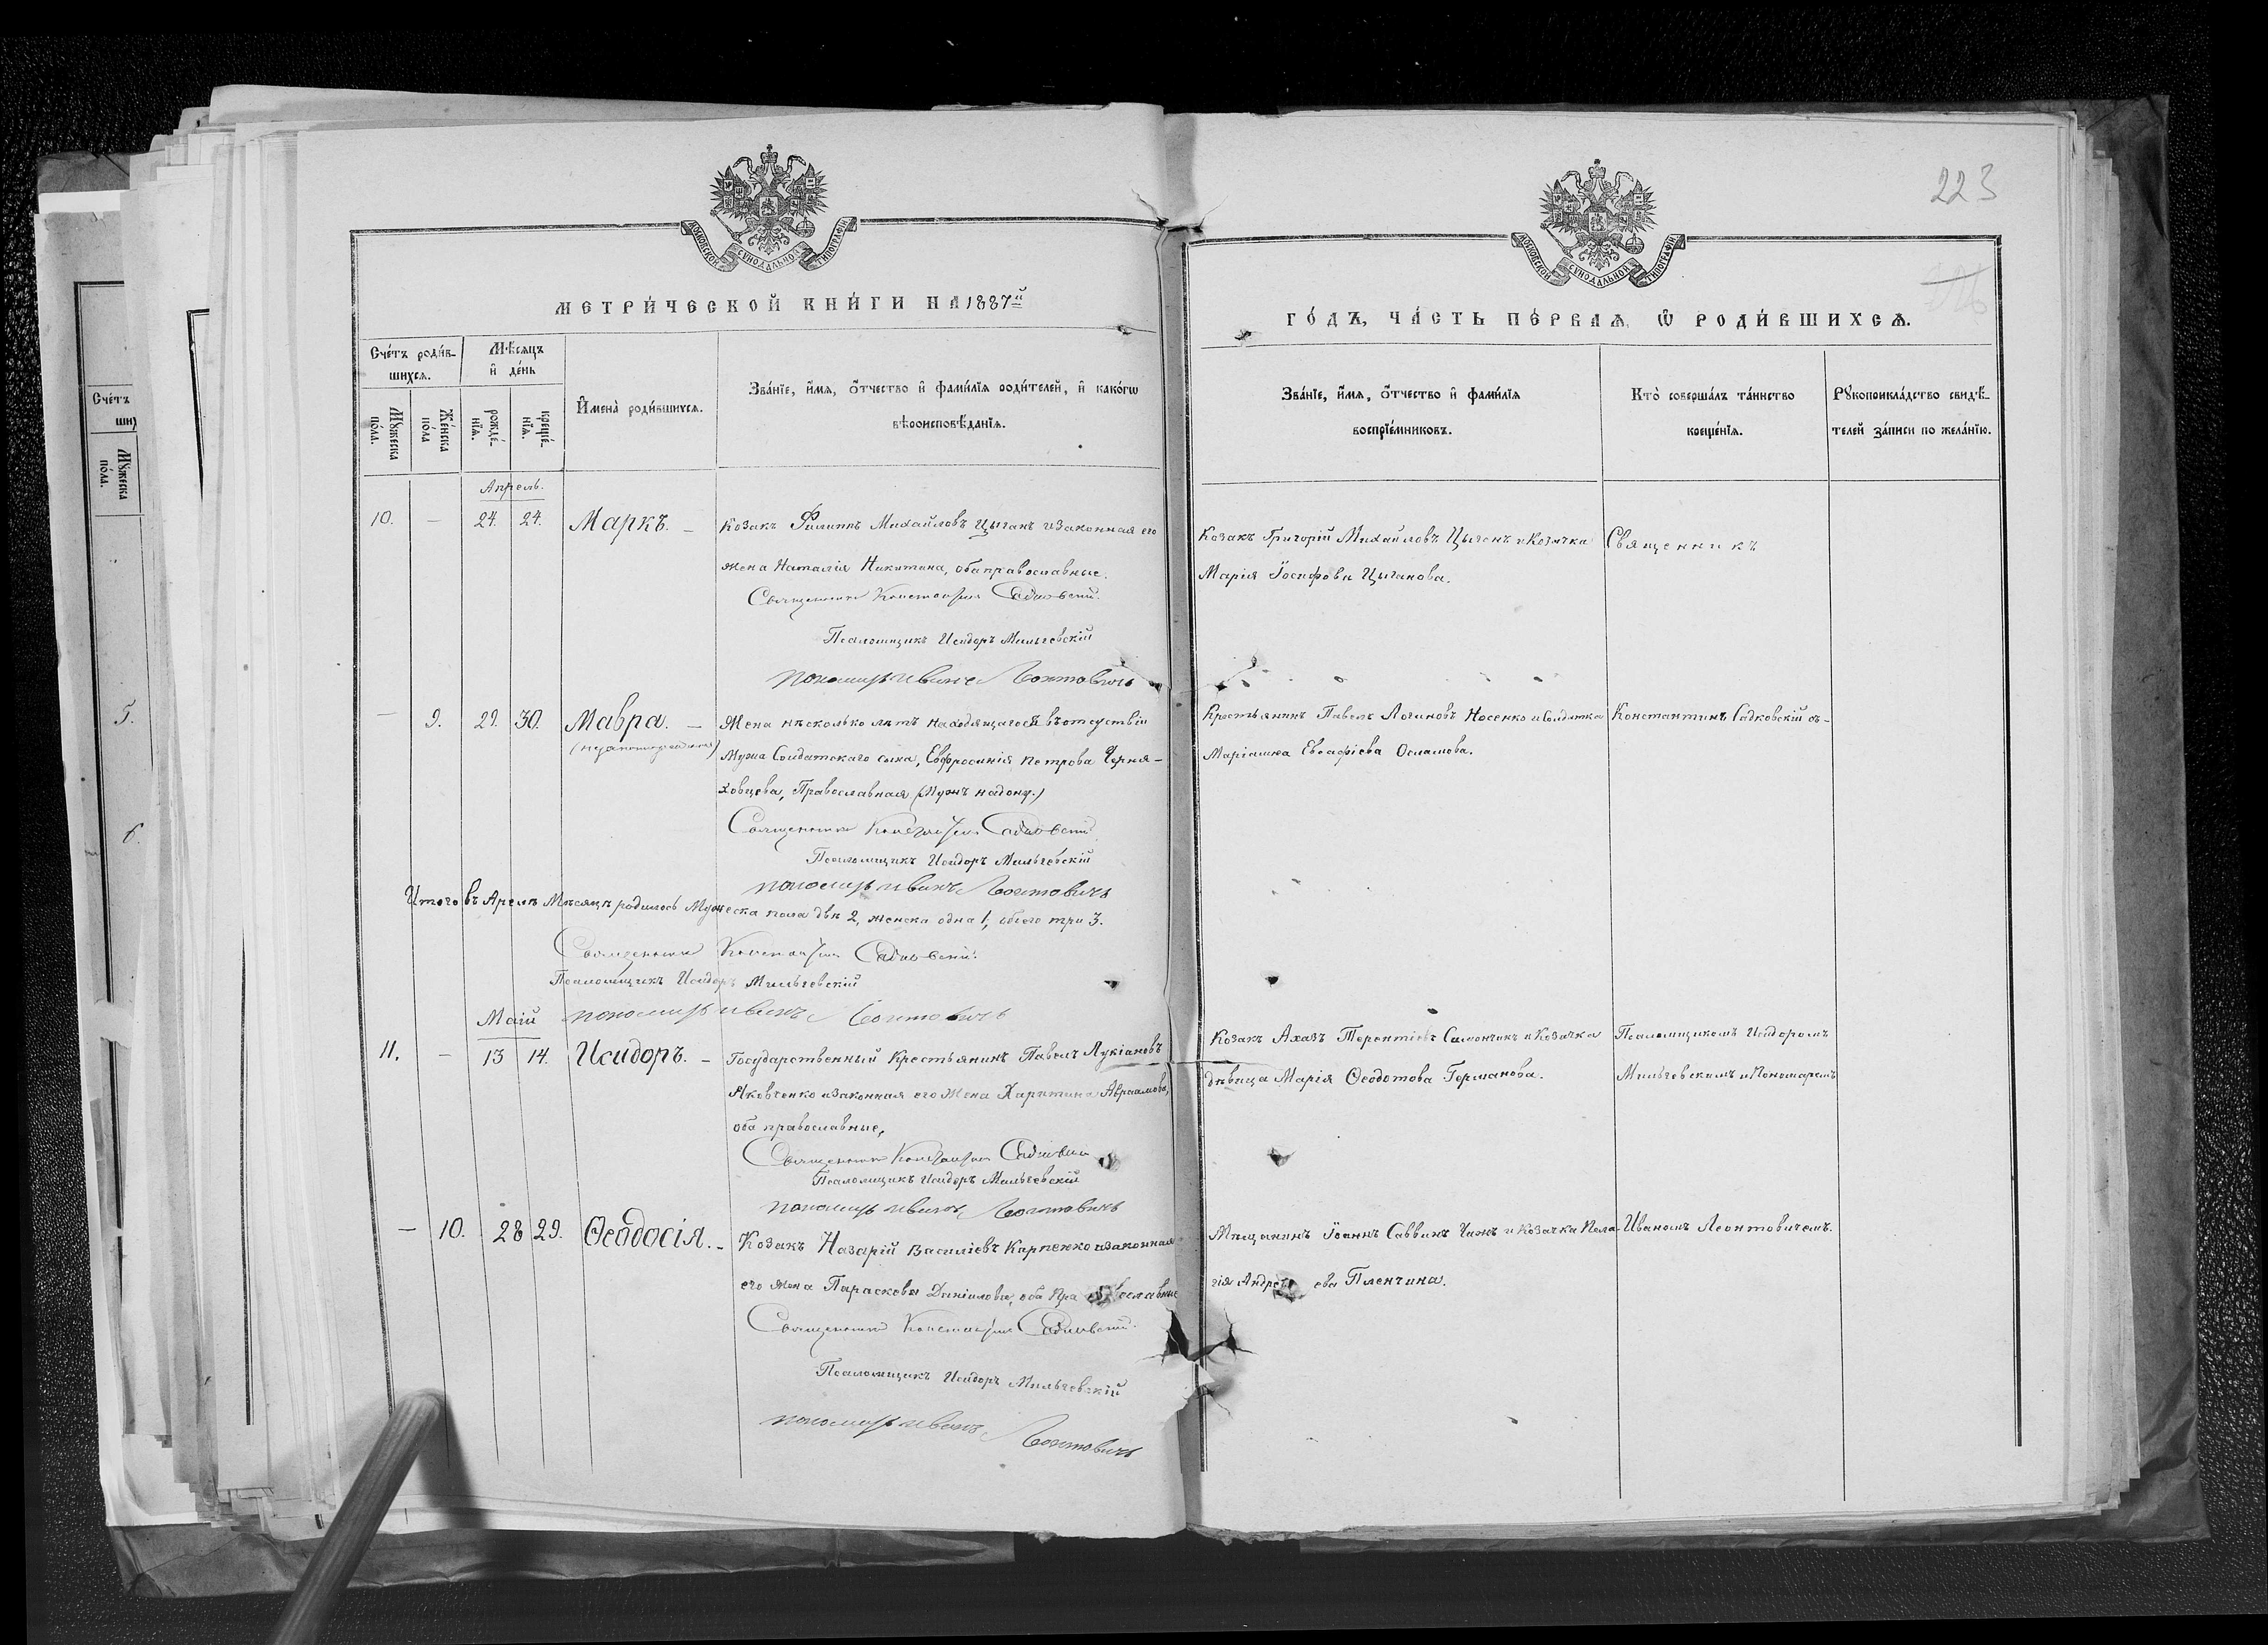 223
МОСКОВСКОЙ СѴНОДАЛЬНОЙ ТИПОГРАФІИ
МОСКОВСКОЙ СѴНОДАЛЬНОЙ ТИПОГРАФІИ
МЕТРИ́ЧЕСКОЙ КНИ́ГИ НА 1887й
ГО́ДЪ, ЧА́СТЬ ПЕ́РВАЯ, Ѡ РОДИ́ВШИХСЯ.
Сче́тъ роди́в-
шихся.
Мѣсяцъ
и де́нь
Мꙋжеска по́ла.
Же́нска по́ла
рожде́-
нїя.
креще́-
нїя.
Имена̀ роди́вшихся.
Зва́нїе, и́мя, о́тчество и фами́лїя роди́телей, и како́гѡ
вѣроисповѣ́данїя.
Зва́нїе, и́мя, о́тчество и фами́лїя
воспрїе́мниковъ.
Кто̀ соверша́лъ та́инство
креще́нїя.
Рꙋкоприкла́дство свидѣ́-
телей за́писи по жела́нїю.
Сче́тъ
Мꙋжеска
по́ла.
5.
6.
Апрель.
10. — 24. 24. Маркъ. — Козакъ Филиппъ Михайловъ Цыганъ и законная его
жена Наталія Никитина, оба православные.
Священникъ Константинъ Садковскій.
Псаломщикъ Исидоръ Мильчевскій
пономарь Иванъ Леонтовичъ
Козакъ Григорій Михайловъ Цыганъ и Козачка
Марія Іосифова Цыганова.
Священникъ
— 9. 29. 30. Мавра. — Жена нѣсколько лѣтъ находящагося въ отсутствіи
(незаконнорожденная)
Мужа Солдатскаго сына, Евфросинія Петрова Черня-
ховцева, Православная (Мужъ на дону.)
Священникъ Константинъ Садковскій
Псаломщикъ Исидоръ Мильчевскій
пономарь Иванъ Леонтовичъ
Крестьянинъ Павелъ Логиновъ Носенко и Солдатка
Константинъ Садковскій съ-
Итого въ Апрелѣ Мѣсяцѣ родилось Мужеска пола два 2, женска одна 1, обоего три 3.
Священникъ Константинъ Садковскій.
Псаломщикъ Исидоръ Мильчевскій
пономарь Иванъ Леонтовичъ
Маій
11. — 13 14. Исидоръ. — Государственный Крестьянинъ Павелъ Лукіановъ
Яковченко и законная его Жена Харитина Авраамова,
оба православные,
Священникъ Константинъ Садковскій
Псаломщикъ Исидоръ Мильчевскій
пономарь Иванъ Леонтовичъ
Козакъ Терентіевъ и Козачка
дѣвица Марія Ѳеодотова Германова.
Псаломщикомъ Исидоромъ
Мильчевскимъ и Пономаремъ
— 10. 28 29. Ѳеодосія. — Козакъ Назарій Василіевъ Карпенко и законная
его жена Параскева Даніилова, оба Православные
Священникъ Константинъ Садковскій.
Псаломщикъ Исидоръ Мильчевскій
пономарь Иванъ Леонтовичъ
Мѣщанинъ Іоаннъ Саввинъ Чижъ и Козачка Пела-
гія Андреева Пленчина.
Иваномъ Леонтовичемъ.